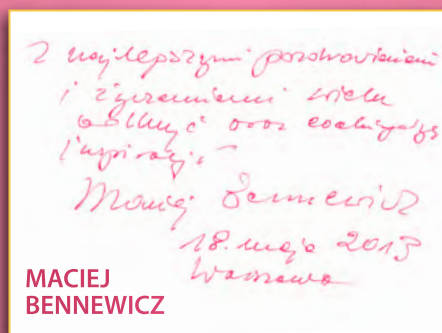 Z najlepszymi pozdrowieniami
i życzeniami wielu
oraz
inspiracji
Maciej Bennewicz
18. maja 2013
Warszawa
MACIEJ
BENNEWICZ